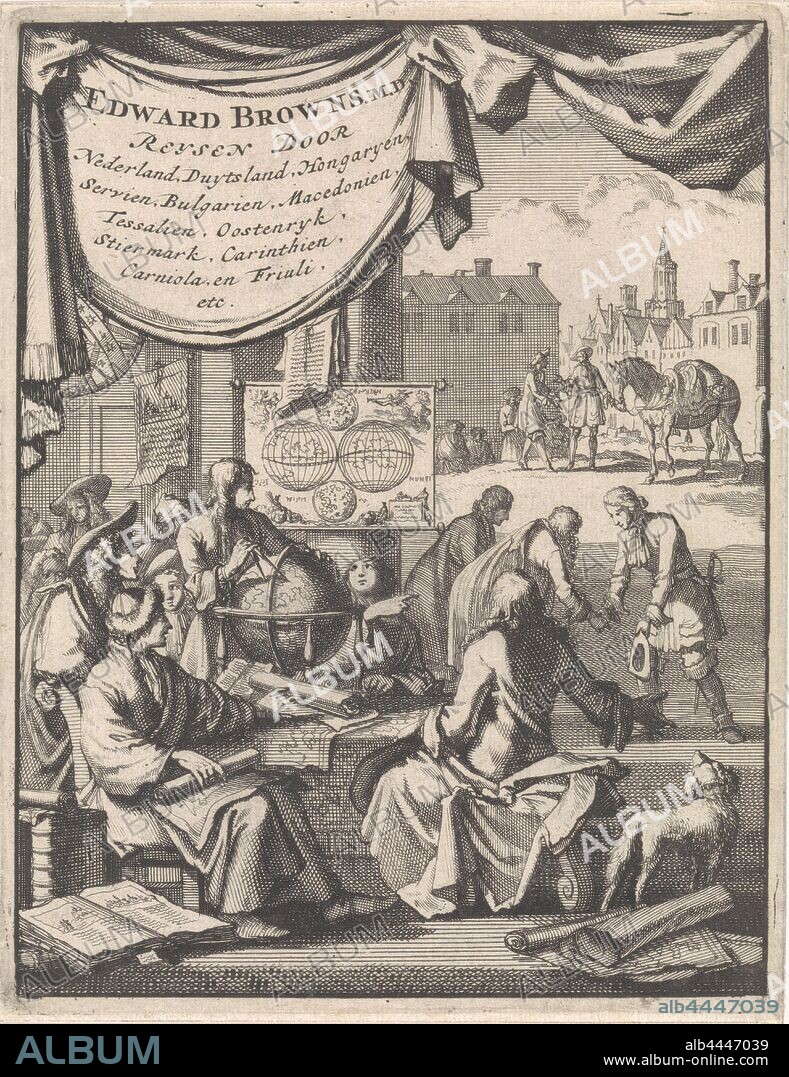 EDWARD BROWNS. M.D
REYSEN DOOR
Nederland, Duytsland, Hongaryen,
Servien, Bulgarien, Macedonien,
Tessalien, Oostenryk,
Stiermark, Carinthien,
Carniola, en Friuli,
etc.
MUNDI
ALBUM
alb4447039
ALBUM
alb4447039
www.album-online.com